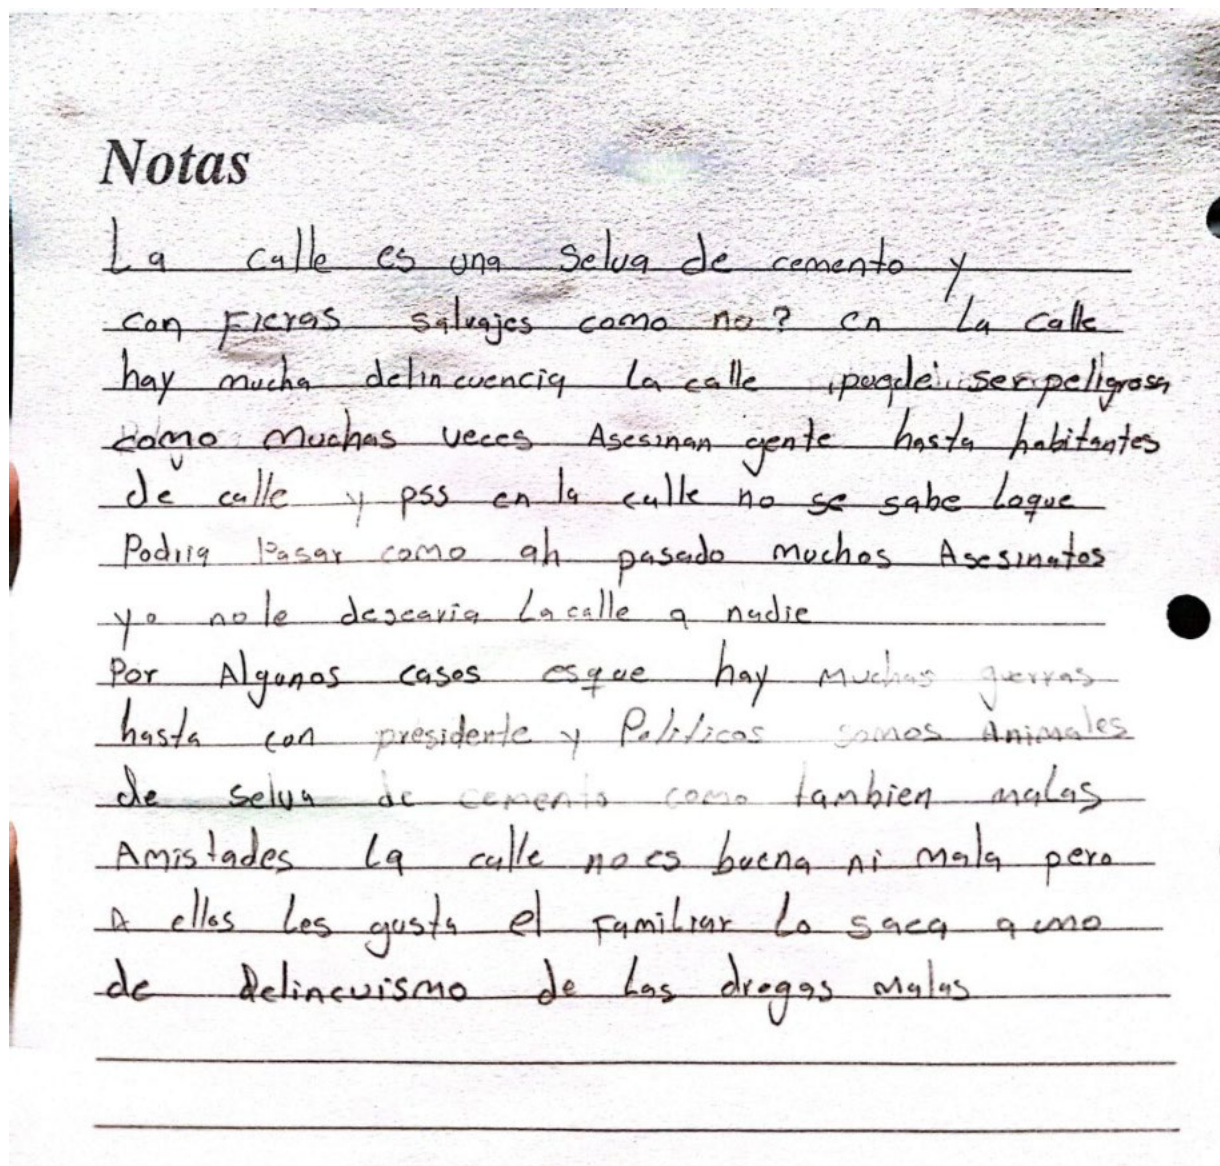 Notas
La calle es una Selva de cemento y
con Fieras salvajes como no? en La calle
hay mucha delincuencia La calle puede ser peligrosa
como muchas veces Asesinan gente hasta habitantes
de calle y pss en la calle no se sabe Loque
Podria Pasar como ah pasado muchos Asesinatos
yo nole desearia La calle a nadie
Por Algunos casos esque hay muchas guerras
hasta con presidente y Politicos somos Animales
de selva de cemento como tambien malas
Amistades La calle no es buena ni mala pero
A ellos Les gusta el Familiar Lo saca a uno
de Delincuismo de Las drogas malas